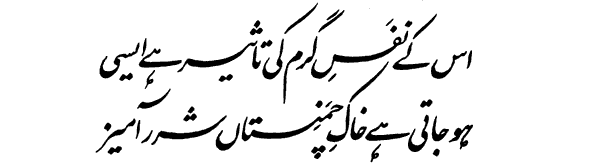 اس کے نفَسِ گرم کی تاثیر ہے ایسی
ہو جاتی ہے خاکِ چَمَنِستاں شرر آمیز